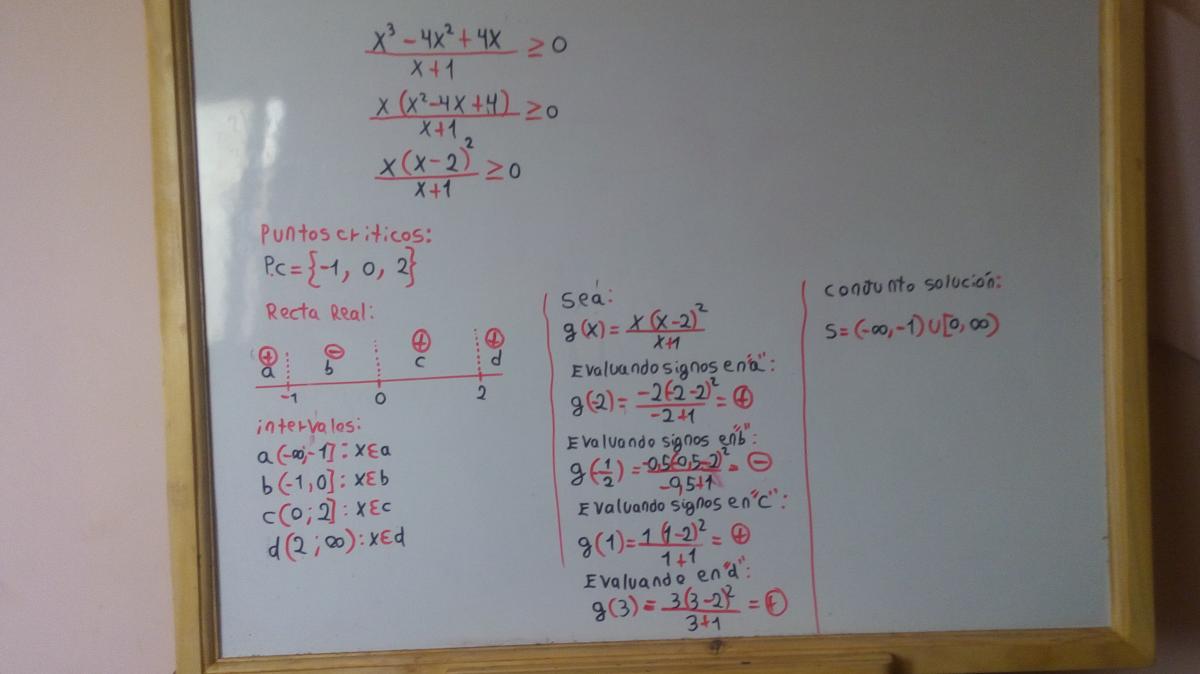 x³ - 4x² + 4x / x+1 ≥ 0
x(x²-4x+4) / x+1 ≥0
x(x-2)² / x+1 ≥ 0
Puntos criticos:
P.c = {-1, 0, 2}
Recta Real:
+ - + +
a b c d
-1 0 2
intervalos:
a(-∞;-1] : x∈a
b(-1,0] : x∈b
c(0;2] : x∈c
d(2;∞) : x∈d
Seá:
g(x) = x(x-2)² / x+1
Evaluando signos en "a":
g(-2) = -2(-2-2)² / -2+1 = +
Evaluando signos en "b":
g(1/2) = -0,5(-0,5-2)² / -0,5+1 = -
Evaluando signos en "c":
g(1) = 1(1-2)² / 1+1 = +
Evaluando en "d":
g(3) = 3(3-2)² / 3+1 = +
conjunto solución:
S = (-∞,-1) ∪ [0, ∞)